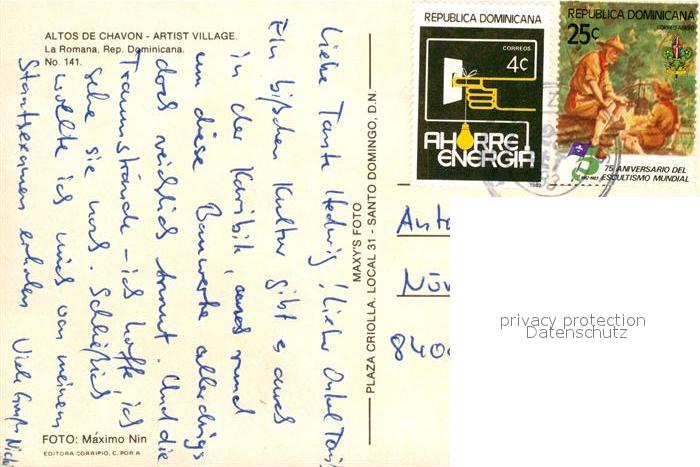 ALTOS DE CHAVON - ARTIST VILLAGE.
La Romana, Rep. Dominicana.
No. 141.
Liebe Tante Hedwig! Lieber Onkel Toni!
Ein bißchen Kultur gibt es auch
in der Karibik, rund
um diese Bauwerke allerdings
doch reichlich Und die
Traumstrände - ich hoffe, ich
sehe sie noch. Schließlich
wollte ich mich von meinem
Staatsexamen erholen
Viele Grüße
FOTO: Máximo Nin
EDITORA CORRIPIO, C. POR A
MAXY'S FOTO
PLAZA CRIOLLA. LOCAL 31 - SANTO DOMINGO, D.N.
REPUBLICA DOMINICANA
CORREOS
4c
AHORRE
ENERGIA
1982
REPUBLICA DOMINICANA
25c
CORREO AEREO
75 ANIVERSARIO DEL
ESCULTISMO MUNDIAL
840
privacy protection
Datenschutz